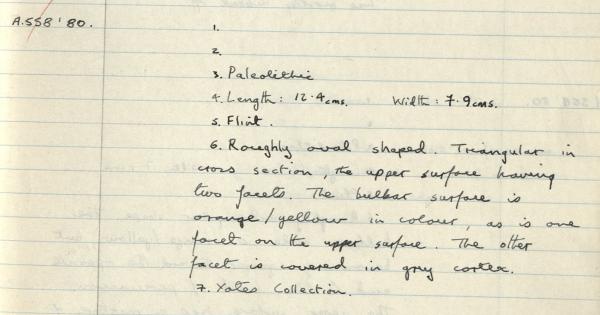 A.558'80.
1.
2.
3. Paleolithic
4. Length: 12.4cms. Width: 7.9cms.
5. Flint.
6. Roughly oval shaped. Triangular in
cross section, the upper surface having
two facets. The bulbar surface is
orange/yellow in colour, as is one
facet on the upper surface. The other
facet is covered in grey cortex.
7. Yates Collection.